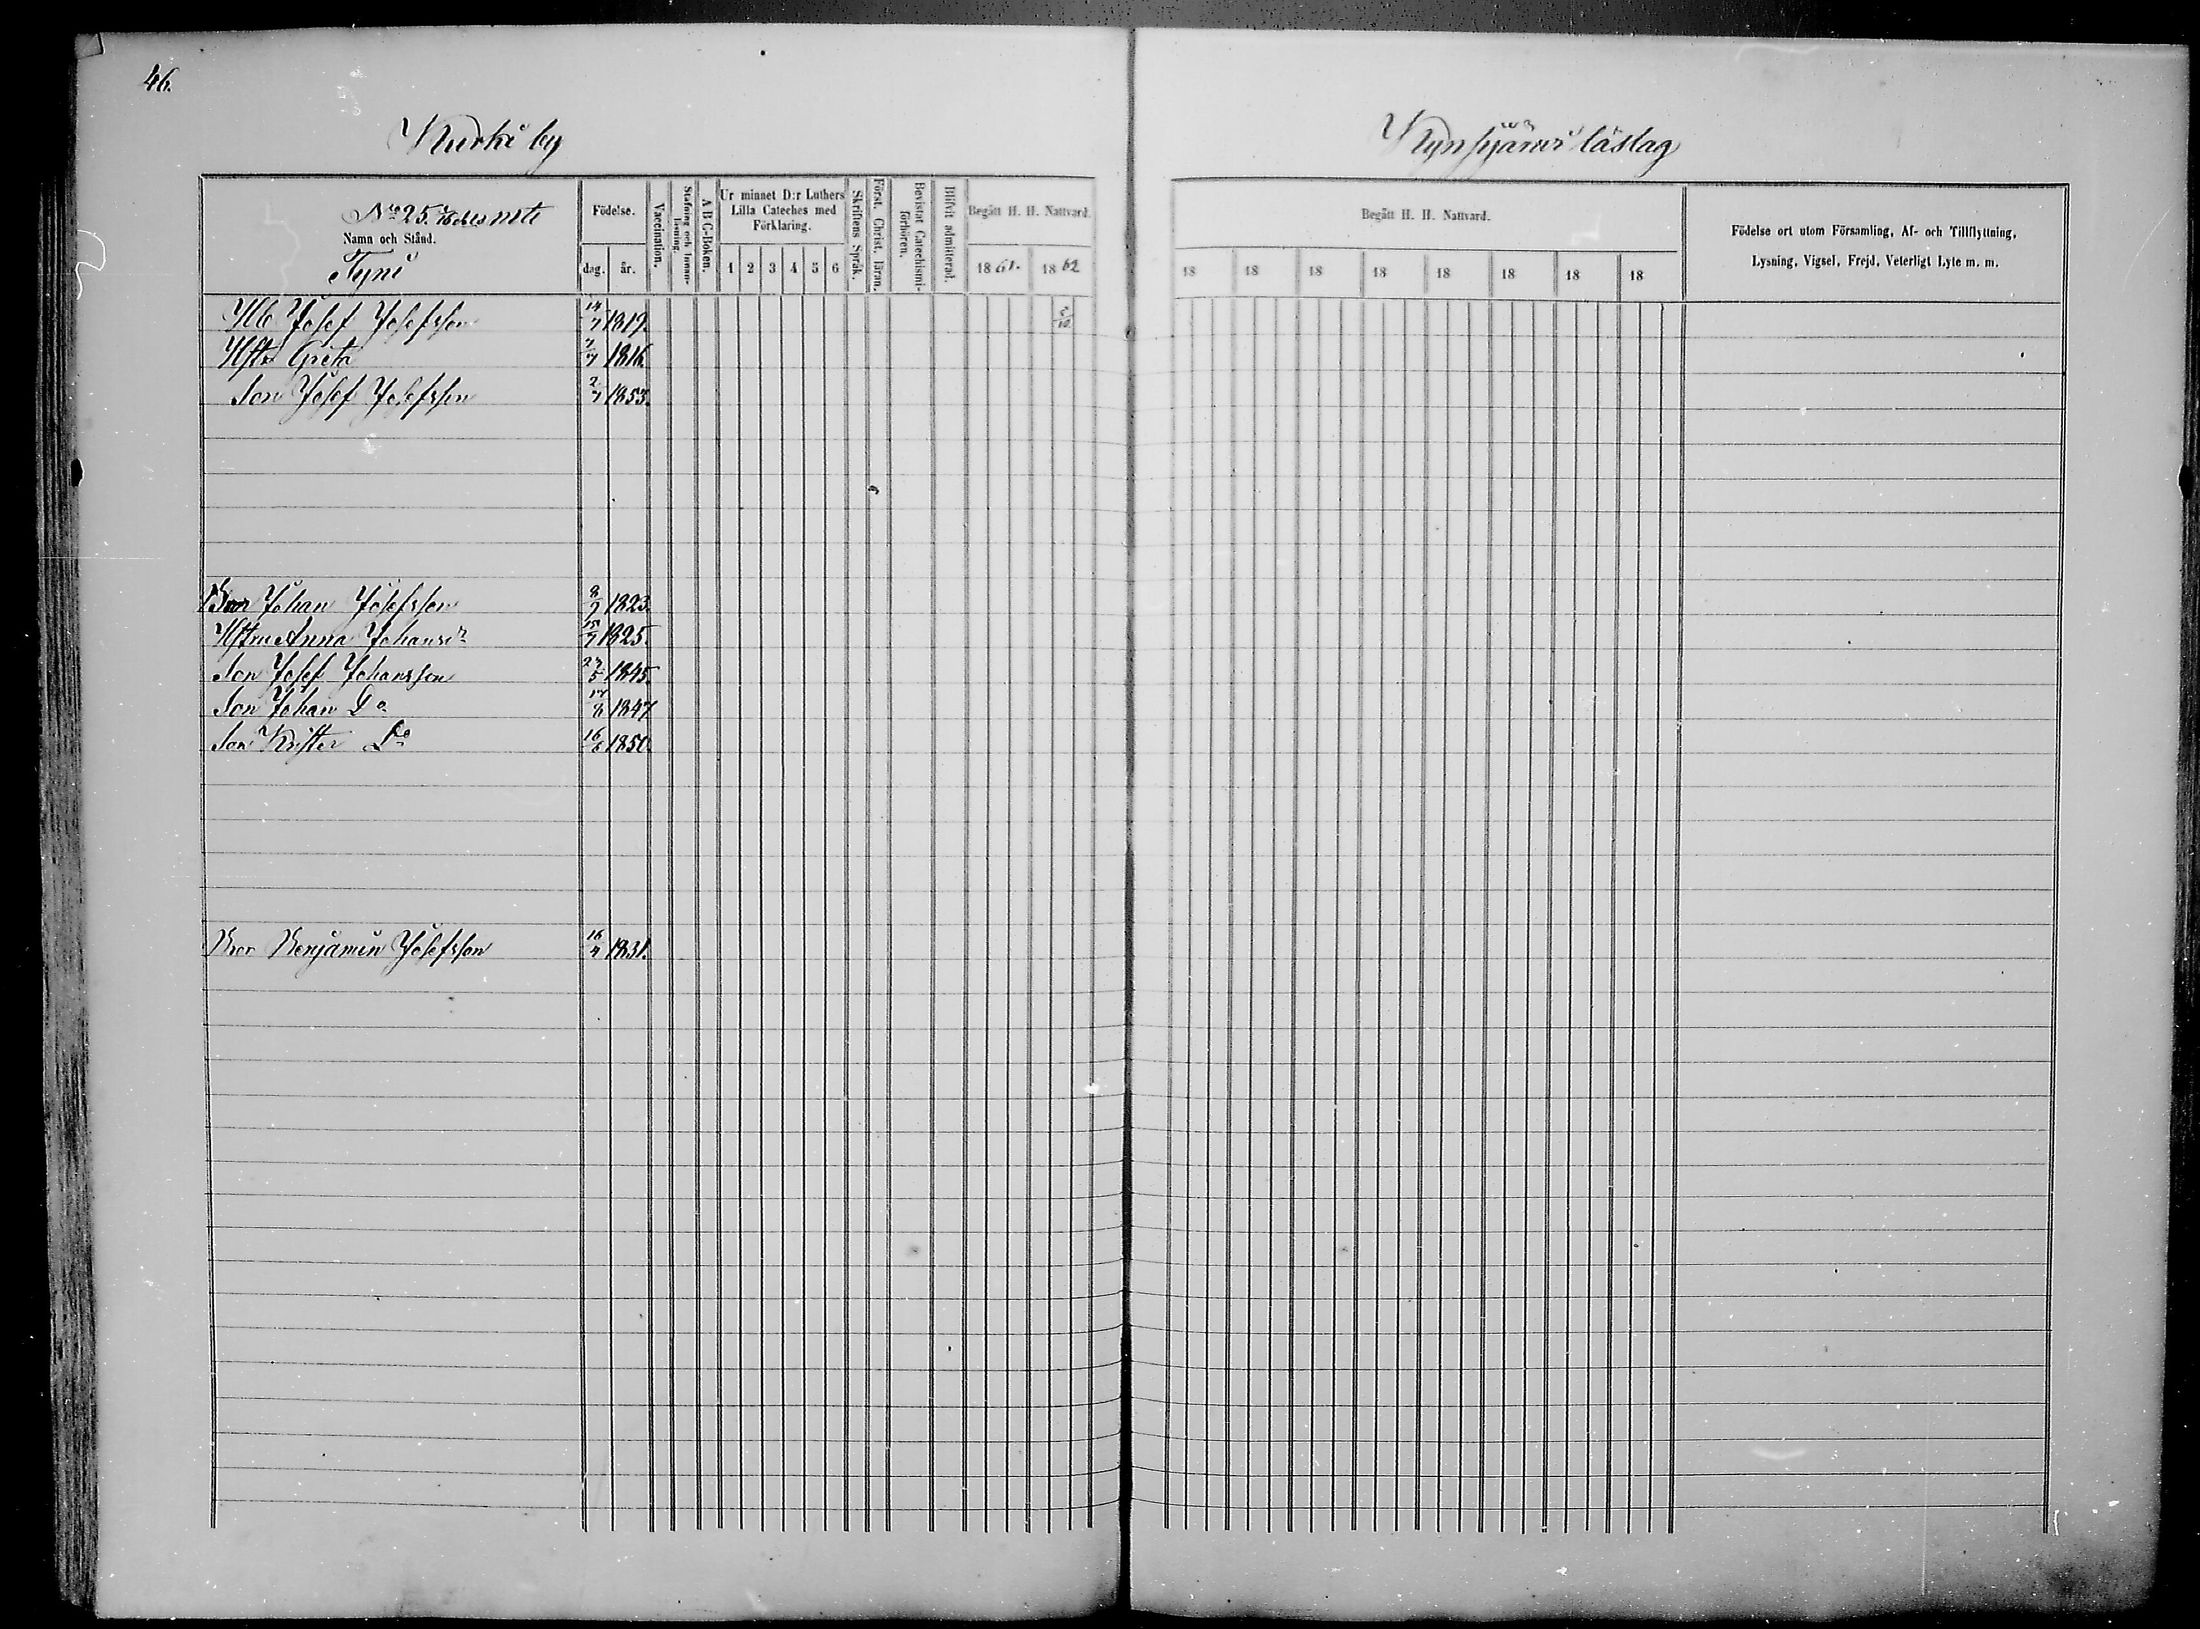 46.
Kurki by
No 25
Namn och Stånd.
Tyni
Födelse.
dag. år.
Vaccination.
Stafning och Innanläsning.
A B C-Boken.
Ur minnet D:r Luthers Lilla Cateches med Förklaring.
1 2 3 4 5 6
Skriftens Språk.
Först. Christ. läran.
Bevistat Catechismiförhören.
Blifvit admitterad.
Begått H. H. Nattvard.
18 61. 18 62
Josef Josefsson 14/7 1819. 5/10
Hstr Greta 7/7 1816.
Son Josef Josefsson 2/7 1853.
Bror Johan Josefsson 8/7 1823.
Hstru Anna Johansdr 15/7 1825.
Son Josef Johansson 27/5 1845.
Son Johan Do 17/8 1847
Son Krister Do 16/6 1850.
Bror Benjamin Josefsson 16/4 1831.
läslag
Begått H. H. Nattvard.
18 18 18 18 18 18 18 18
Födelse ort utom Församling, Af- och Tillflyttning,
Lysning, Vigsel, Frejd, Veterligt Lyte m. m.